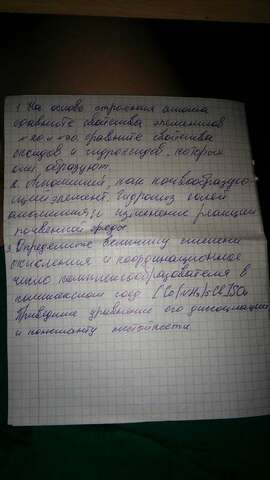 1. На основе строения атома
сравните свойства элементов
№20 и №30. сравните свойства
оксидов и гидроксидов, которые
они образуют.
2. Алюминий, как почвообразую-
щий элемент. Гидролиз солей
алюминия и изменение реакции
почвенной среды
3. Определите величину степени
окисления и координационное
число комплексообразователя в
комплексном соед. [Co(NH3)5Cl]SO4
Приведите уравнение его диссоциации
и константу нестойкости